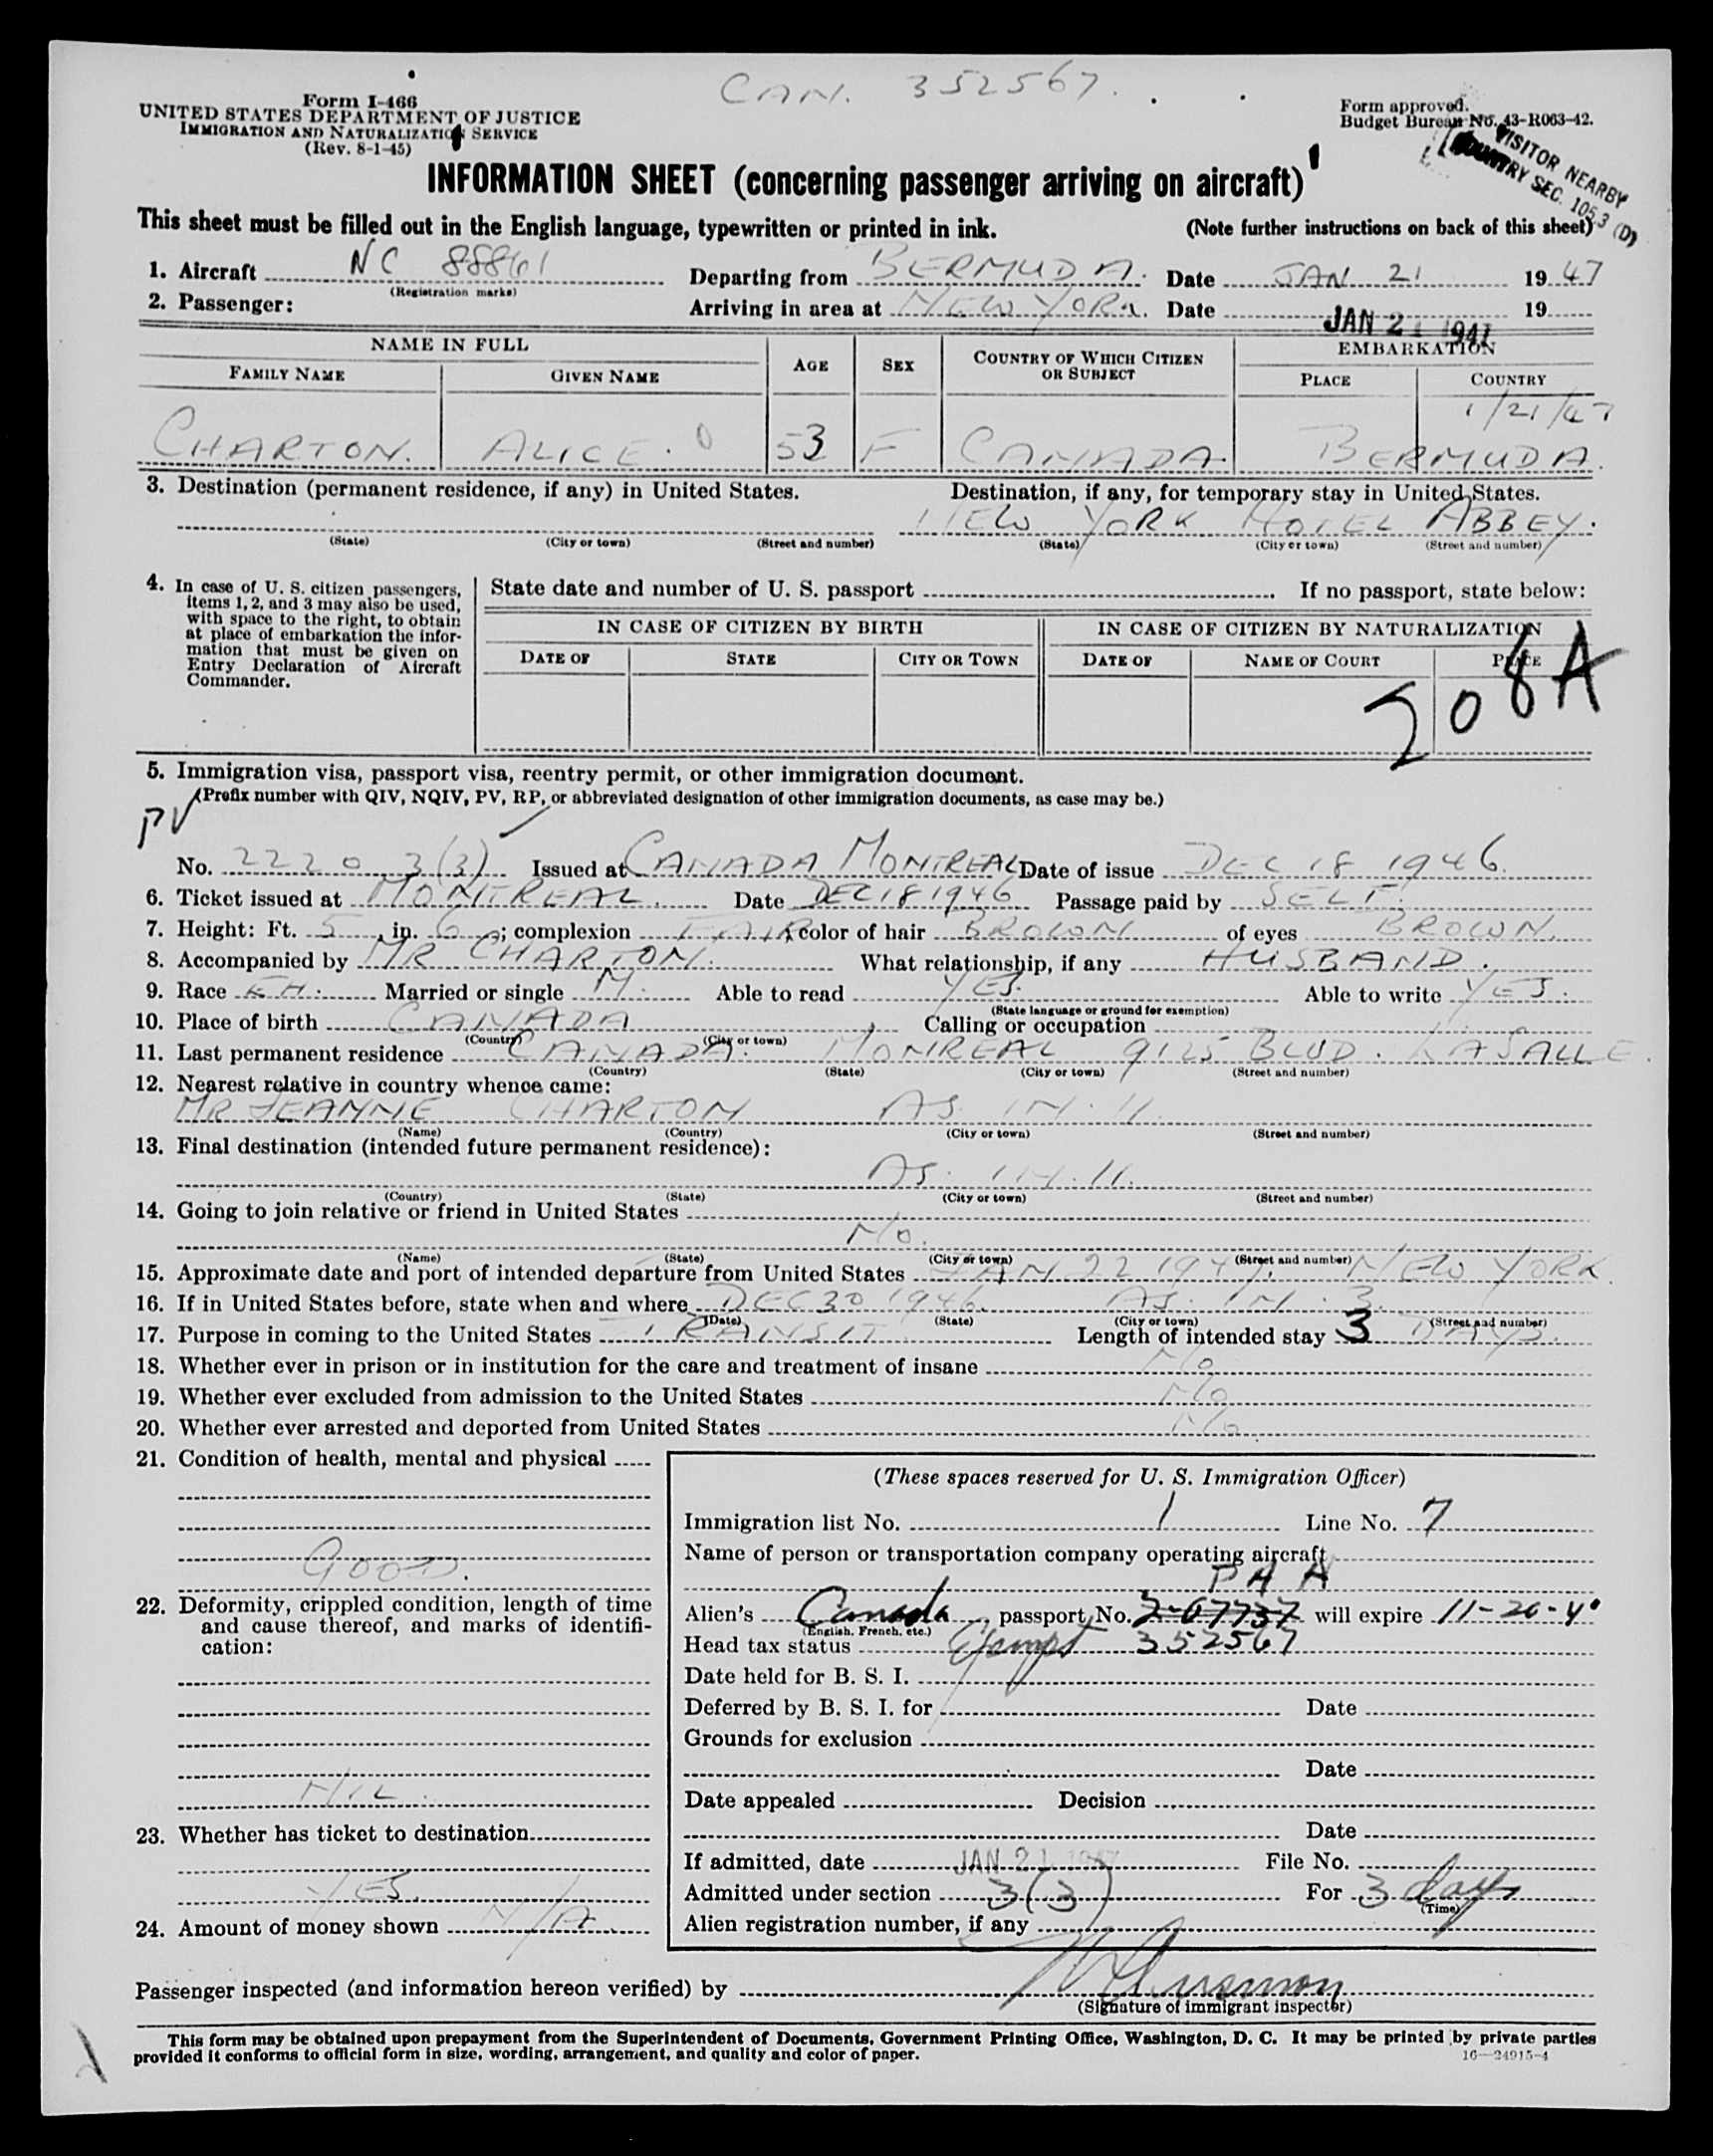 CAN. 352567.
Form I-466
UNITED STATES DEPARTMENT OF JUSTICE
IMMIGRATION AND NATURALIZATION SERVICE
(Rev. 8-1-45)
Form approved.
Budget Bureau No. 43-R063-42.
VISITOR NEARBY
COUNTRY SEC. 105.3 (D)
INFORMATION SHEET (concerning passenger arriving on aircraft)
This sheet must be filled out in the English language, typewritten or printed in ink. (Note further instructions on back of this sheet)
1. Aircraft NC 88861 Departing from BERMUDA. Date JAN 21 1947
(Registration marks)
2. Passenger: Arriving in area at NEW YORK. Date JAN 21 1947 19
NAME IN FULL AGE SEX COUNTRY OF WHICH CITIZEN OR SUBJECT EMBARKATION
FAMILY NAME GIVEN NAME PLACE COUNTRY
1/21/47
CHARTON. ALICE. 53 F CANADA. BERMUDA.
3. Destination (permanent residence, if any) in United States. Destination, if any, for temporary stay in United States.
NEW YORK HOTEL ABBEY.
(State) (City or town) (Street and number) (State) (City or town) (Street and number)
4. In case of U. S. citizen passengers, items 1, 2, and 3 may also be used, with space to the right, to obtain at place of embarkation the information that must be given on Entry Declaration of Aircraft Commander.
State date and number of U. S. passport If no passport, state below:
IN CASE OF CITIZEN BY BIRTH IN CASE OF CITIZEN BY NATURALIZATION
DATE OF STATE CITY OR TOWN DATE OF NAME OF COURT PLACE
208A
5. Immigration visa, passport visa, reentry permit, or other immigration document.
(Prefix number with QIV, NQIV, PV, RP, or abbreviated designation of other immigration documents, as case may be.)
PV
No. 2220 3(3) Issued at CANADA MONTREAL Date of issue DEC 18 1946.
6. Ticket issued at MONTREAL. Date DEC 18 1946 Passage paid by SELF.
7. Height: Ft. 5, in. 6; complexion FAIR; color of hair BROWN of eyes BROWN.
8. Accompanied by MR CHARTON. What relationship, if any HUSBAND.
9. Race Married or single M. Able to read YES. Able to write YES.
(State language or ground for exemption)
10. Place of birth CANADA Calling or occupation
(Country) (City or town)
11. Last permanent residence CANADA. MONREAL 9125 BLVD. LASALLE.
(Country) (State) (City or town) (Street and number)
12. Nearest relative in country whence came:
MR JEANNIE CHARTON AS IN. 11.
(Name) (Country) (City or town) (Street and number)
13. Final destination (intended future permanent residence):
AS. IN. 11.
(Country) (State) (City or town) (Street and number)
14. Going to join relative or friend in United States
No.
(Name) (State) (City or town) (Street and number)
15. Approximate date and port of intended departure from United States JAN 22 1947. NEW YORK.
16. If in United States before, state when and where DEC 30 1946. AS. IN. 3.
(Date) (State) (City or town) (Street and number)
17. Purpose in coming to the United States TRANSIT Length of intended stay 3 DAYS.
18. Whether ever in prison or in institution for the care and treatment of insane No
19. Whether ever excluded from admission to the United States No
20. Whether ever arrested and deported from United States No.
21. Condition of health, mental and physical
GOOD.
22. Deformity, crippled condition, length of time
and cause thereof, and marks of identifi-
cation:
NIL.
23. Whether has ticket to destination
YES.
24. Amount of money shown N/A.
(These spaces reserved for U. S. Immigration Officer)
Immigration list No. 1 Line No. 7
Name of person or transportation company operating aircraft
PAA
Alien's Canada, passport No. 2-67737 will expire
(English, French, etc.)
Head tax status Exempt 352567
Date held for B. S. I.
Deferred by B. S. I. for Date
Grounds for exclusion
Date
Date appealed Decision
Date
If admitted, date JAN 21 1947 File No.
Admitted under section 3(3) For 3 days
(Time)
Alien registration number, if any
Passenger inspected (and information hereon verified) by
(Signature of immigrant inspector)
This form may be obtained upon prepayment from the Superintendent of Documents, Government Printing Office, Washington, D. C. It may be printed by private parties
provided it conforms to official form in size, wording, arrangement, and quality and color of paper.
16—24915-4